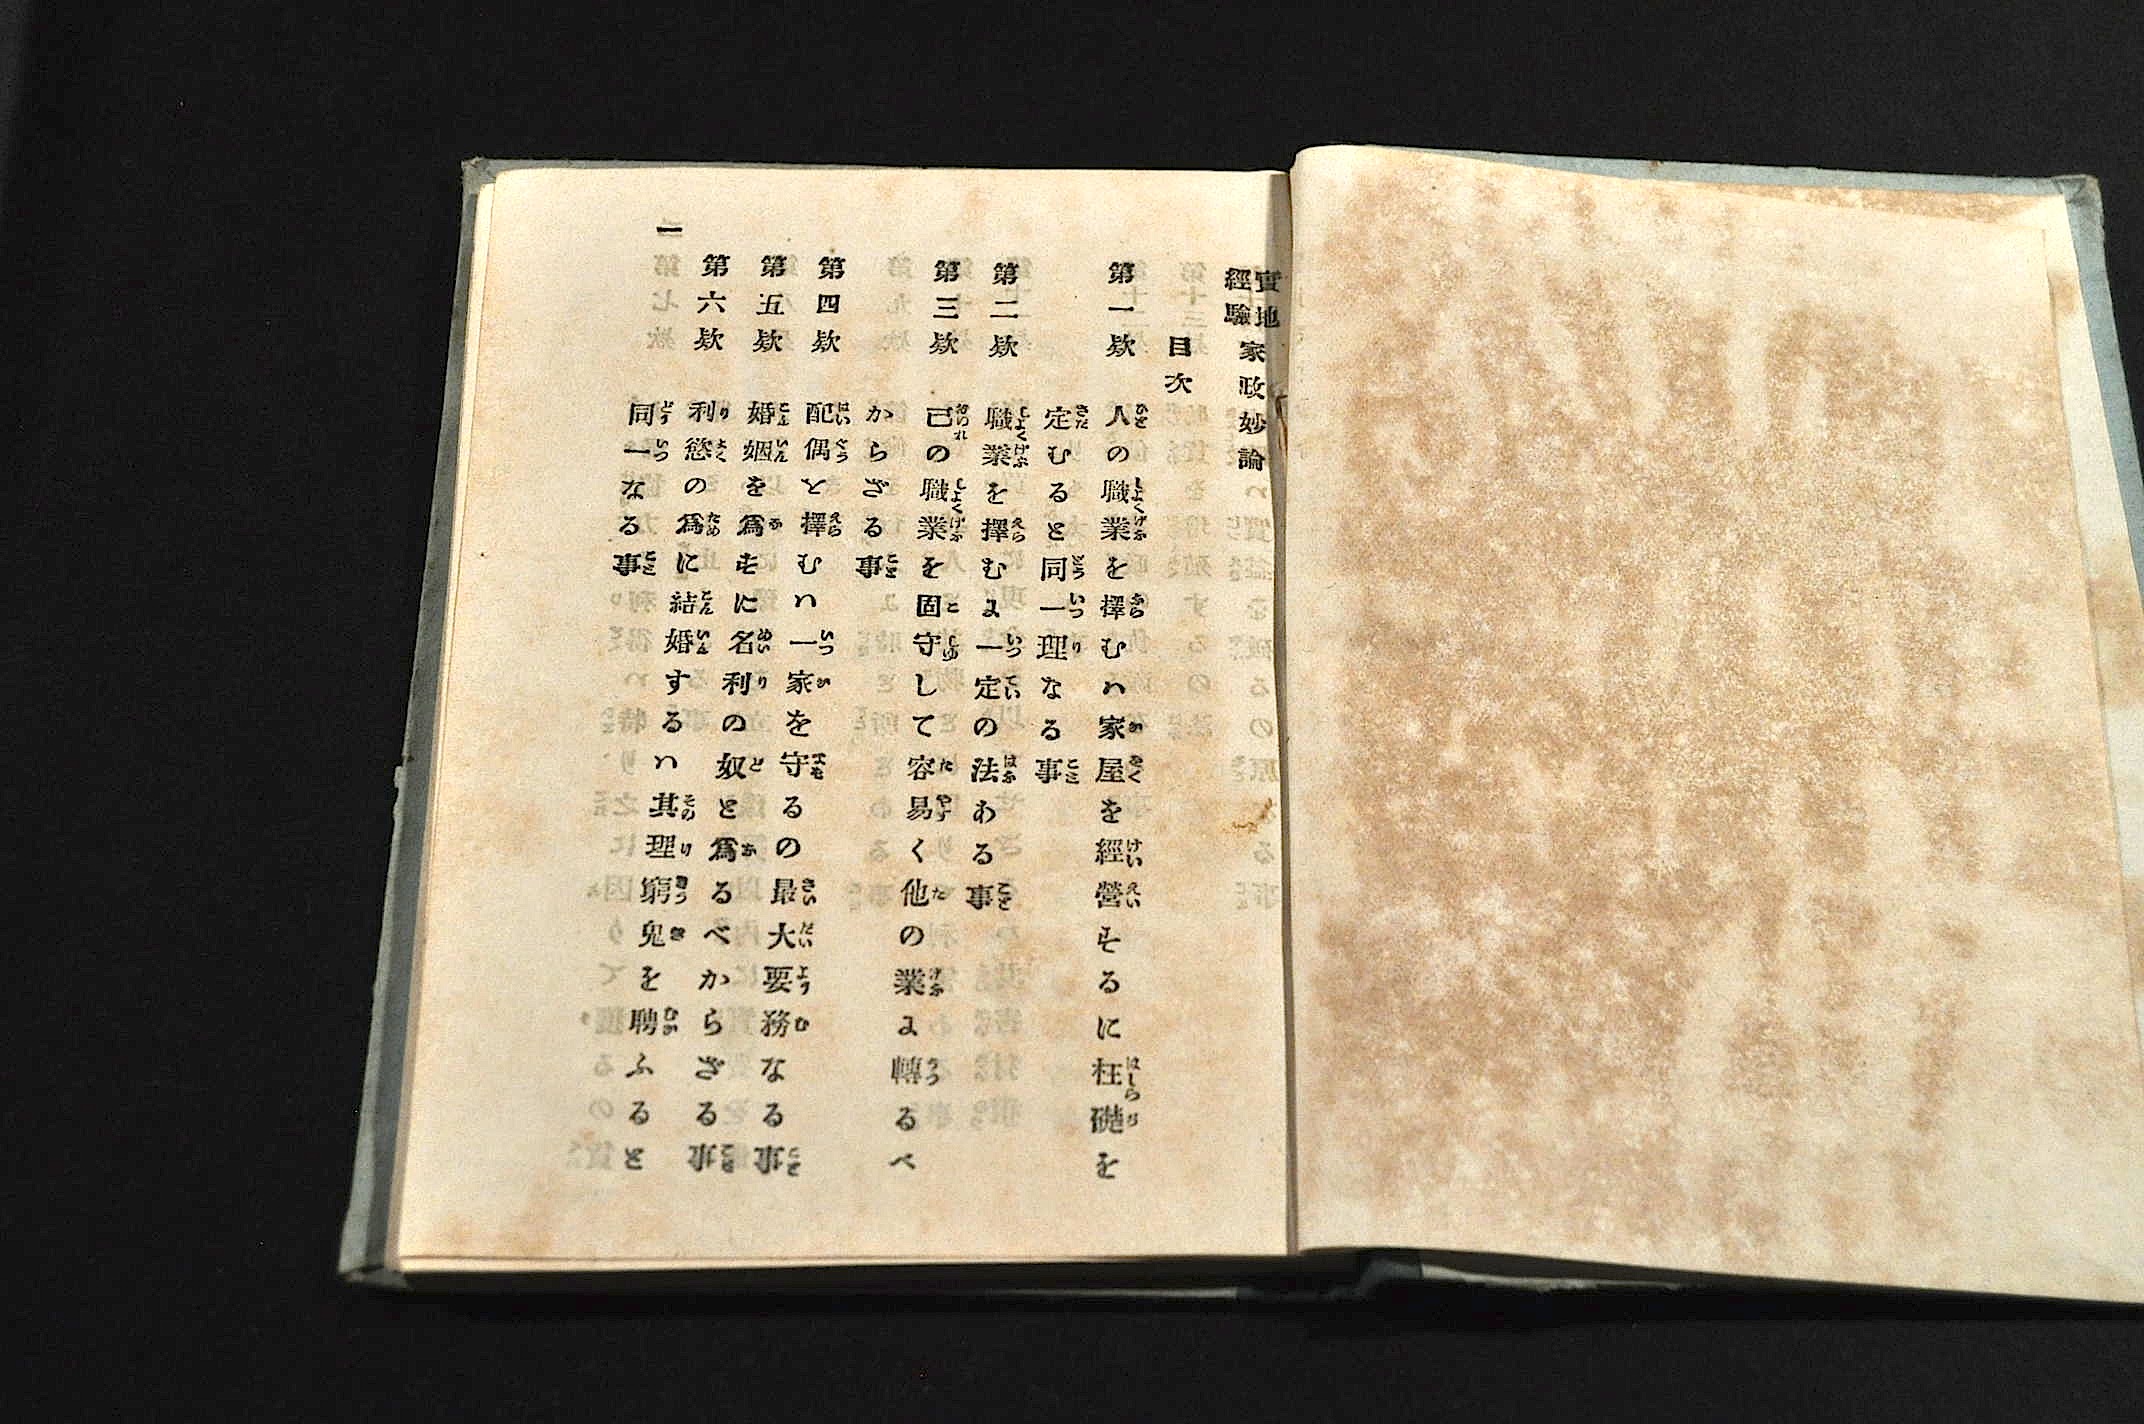 實地經驗家政妙論
目次
第一欵 人の職業を擇むハ家屋を經營するに柱礎を
定むると同一理なる事
第二欵 職業を擇むに一定の法ある事
第三欵 己の職業を固守して容易く他の業に轉るべ
からざる事
第四欵 配偶を擇むハ一家を守るの最大要務なる事
第五欵 婚姻を爲すに名利の奴と爲るべからざる事
第六欵 利慾の爲に結婚するハ其理窮鬼を聘ふると
同一なる事
一